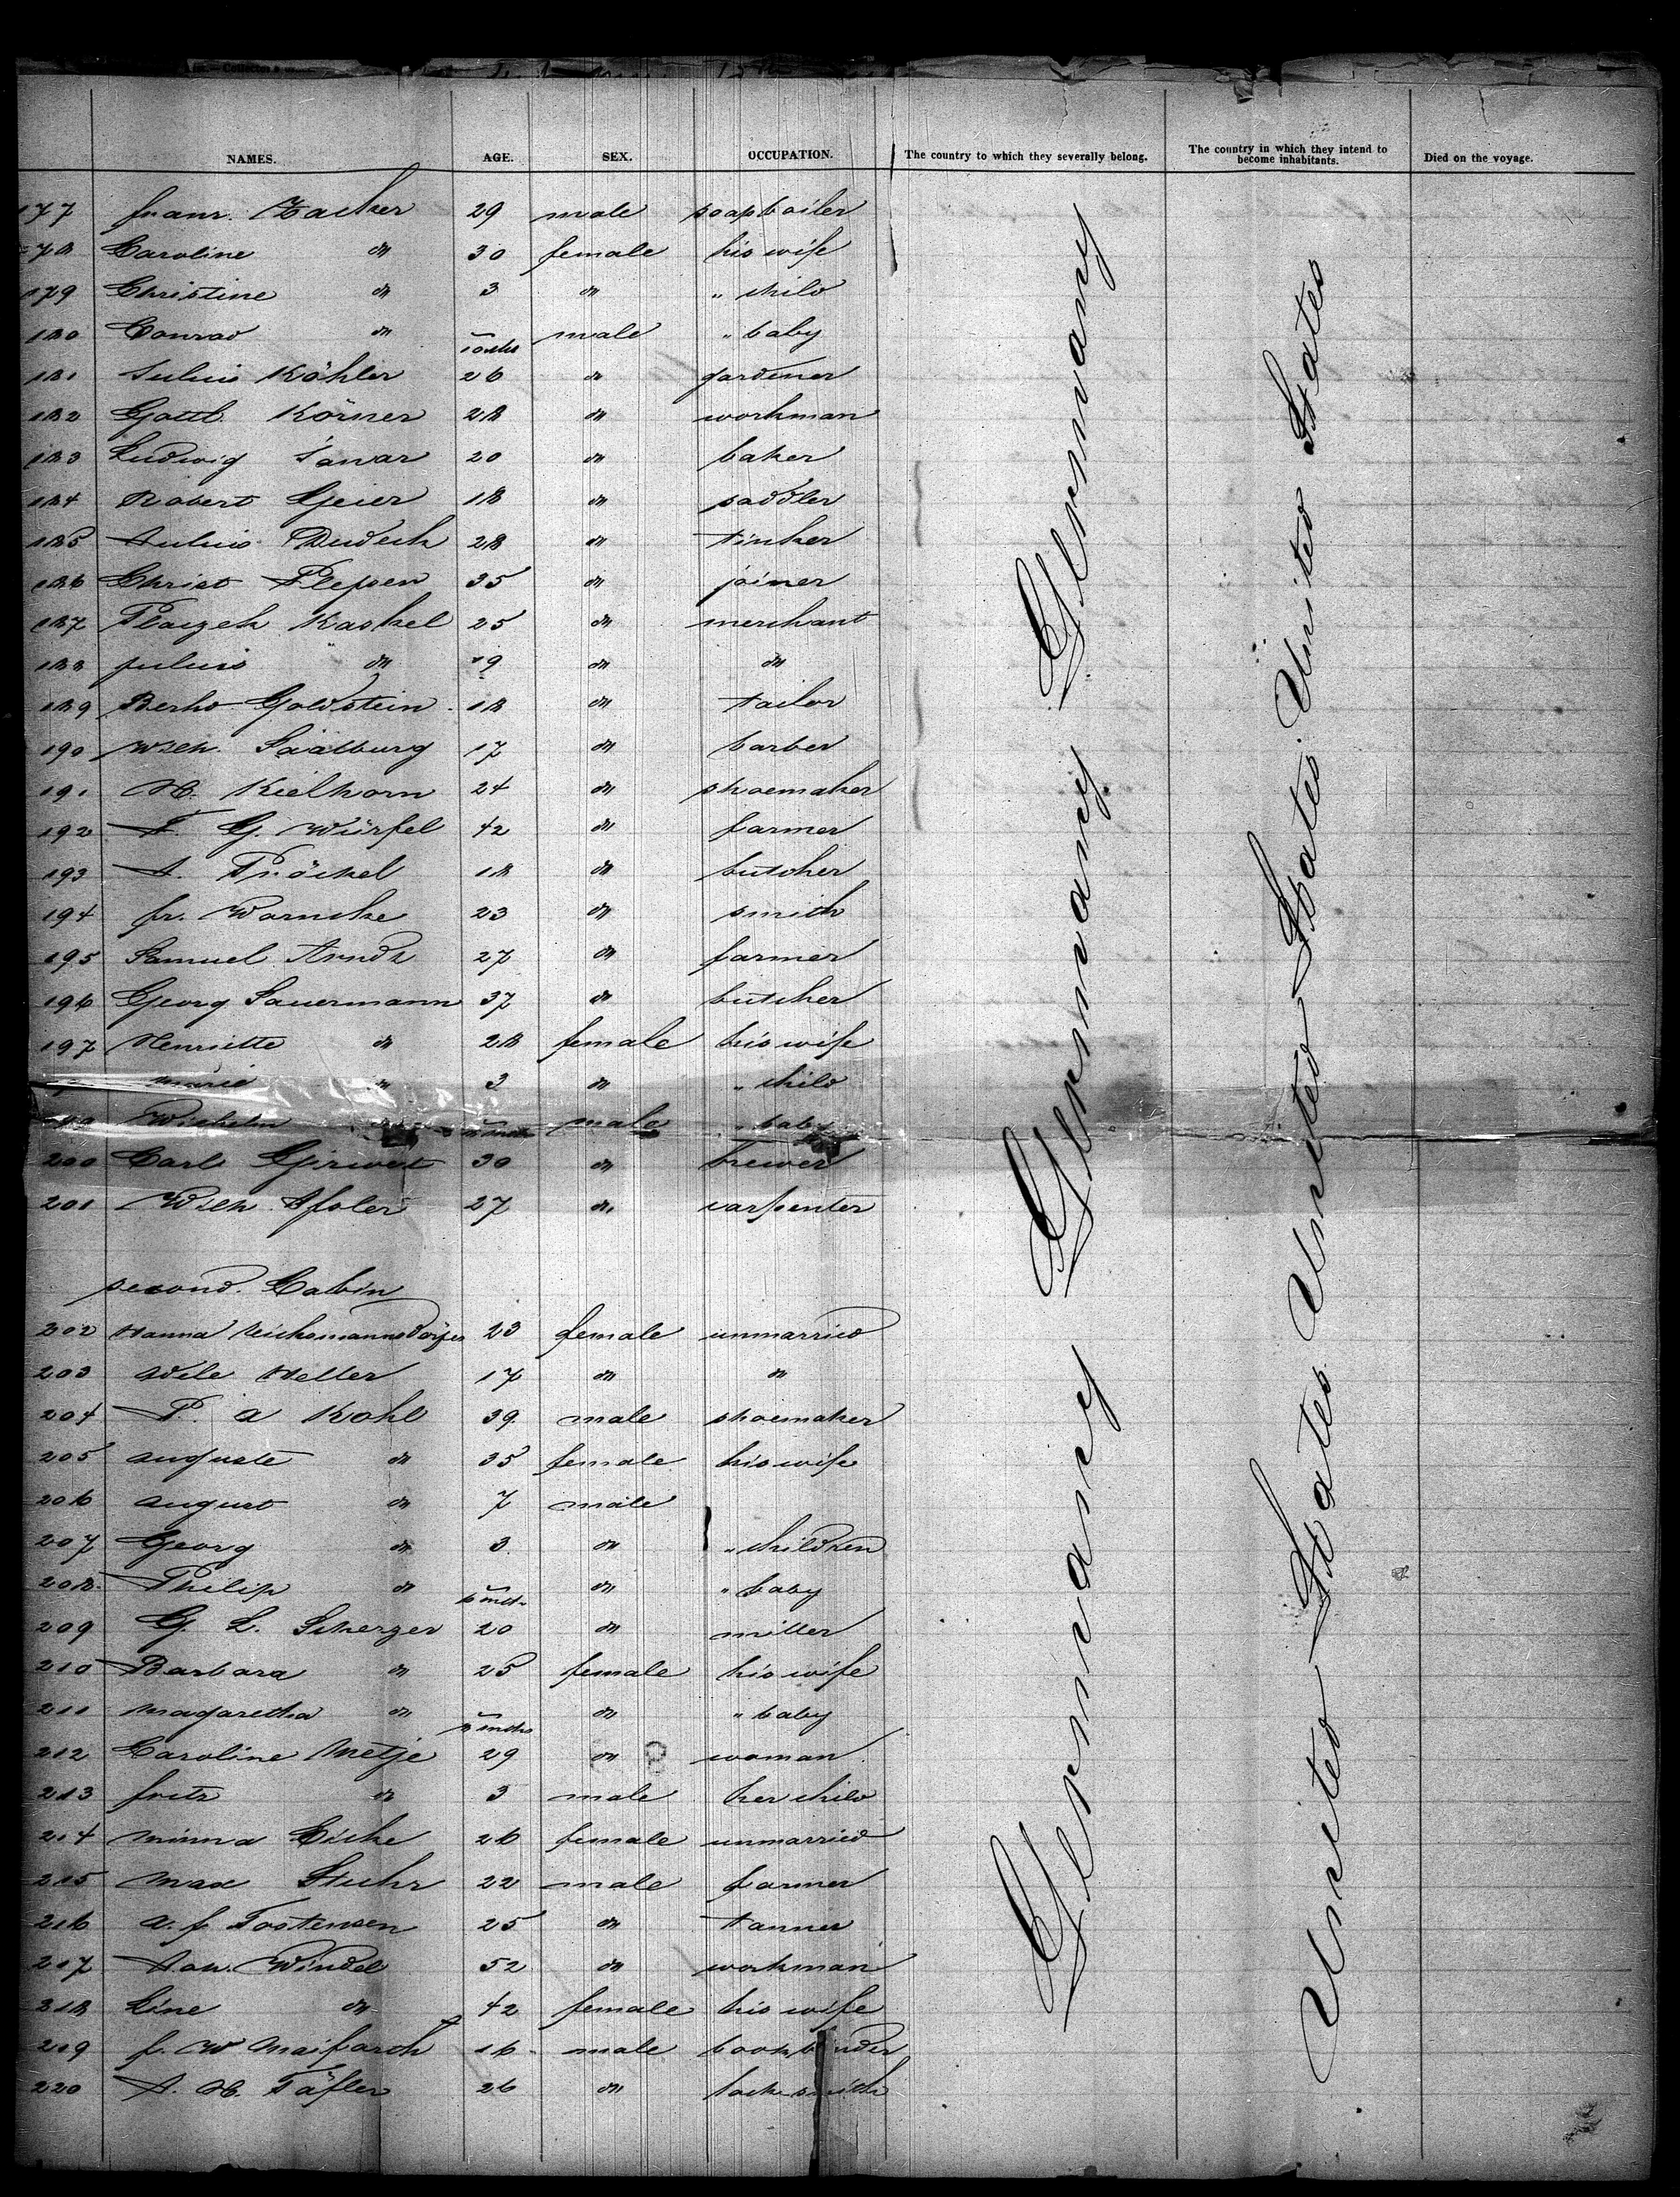 NAMES. AGE. SEX. OCCUPATION. The country to which they severally belong. The country in which they intend to become inhabitants. Died on the voyage.
177 franz. Zacker 29 male soapboiler
178 Caroline do 30 female his wife
179 Christine do 3 do " child
180 Conrad do 10 mths male " baby
181 Julius Köhler 26 do gardener
182 Gottl. Körner 28 do workman
183 Ludwig Tawar 20 do baker
184 Robert Geier 18 do saddler
185 Julius Dudeck 28 do tinker
186 Christ Plessen 35 do joiner
187 Kaskel 25 do merchant
188 Julius do 19 do do
189 Goldstein 18 do tailor
190 Wilh. Saalburg 17 do barber
191 H. Kielhorn 24 do shoemaker
192 F. G. Würfel 42 do farmer
193 A. Pröckel 18 do butcher
194 fr. Warncke 23 do smith
195 Samuel Arndt 27 do farmer
196 Georg Sauermann 37 do butcher
197 Henriette do 28 female his wife
Marie do 3 do " child
Wilhelm male " baby
200 Carl 30 do brewer
201 Wilh. 27 do carpenter
second. Cabin
202 Hanna Reichsmannsdörfer 23 female unmarried
203 Adele Heller 17 do do
204 P. A Kohl 39 male shoemaker
205 Auguste do 35 female his wife
206 August do 7 male
207 Georg do 3 do " children
208 Philip do 6 mths do " baby
209 G. L. Scherzer 20 do miller
210 Barbara do 25 female his wife
211 Magaretha do mths do " baby
212 Caroline Metje 29 do woman
213 fritz do 3 male her child
214 Minna Eicke 26 female unmarried
215 Max Stuhr 22 male farmer
216 A. f. Tostensen 25 do tanner
217 Windel 52 do workman
218 Line do 42 female his wife
219 f. W Maifarth 16 male bookbinder
220 A. H. Täfler 26 do locksmith
Germany Germany Germany Germany
United States United States United States